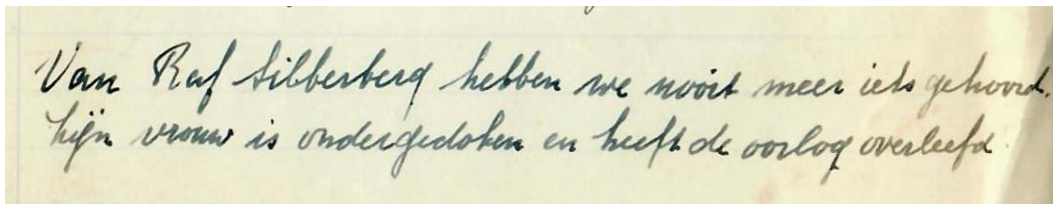 Van Raf Silberberg hebben we nooit meer iets gehoord.
Zijn vrouw is ondergedoken en heeft de oorlog overleefd